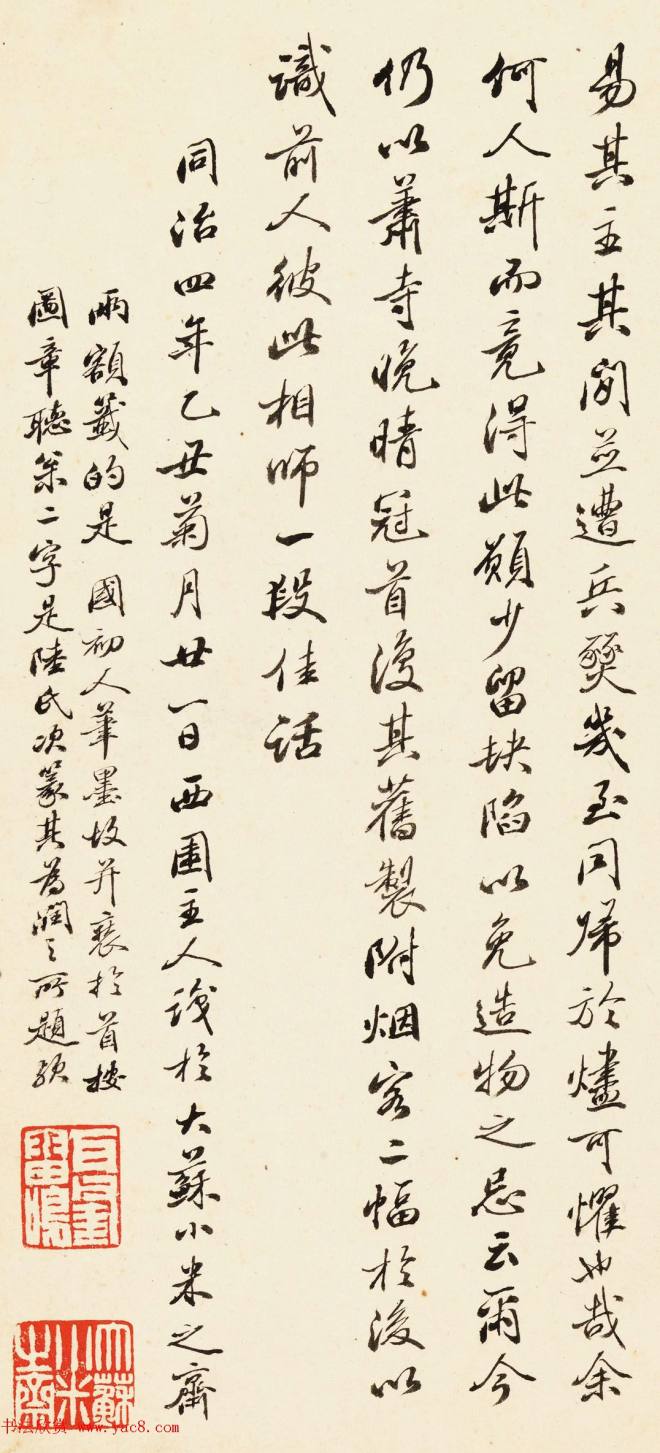 易其主其間並遭兵燹幾至同歸於燼可懼也哉余
何人斯而竟得此願少留缺陷以免造物之忌云爾今
仍以蕭寺晚晴冠首復其舊製附烟客二幅於後以
識前人彼此相師一段佳話
同治四年乙丑菊月廿一日西圃主人識於大蘇小米之齋
兩額籤的是 國初人筆墨故并裝於首樓
圖章聽松二字是陸氏次篆其為潤之所題歟
大蘇小米之齋
书法欣赏 www.yac8.com